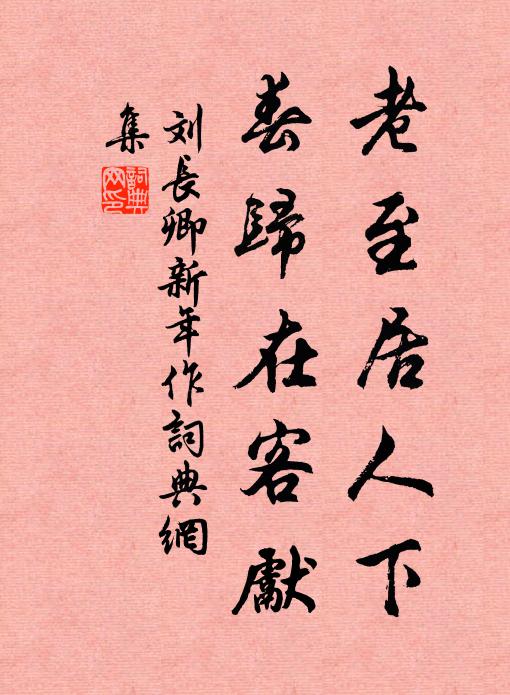 老至居人下
春歸在客獻
刘長卿新年作詞典網
集
詞典
网印